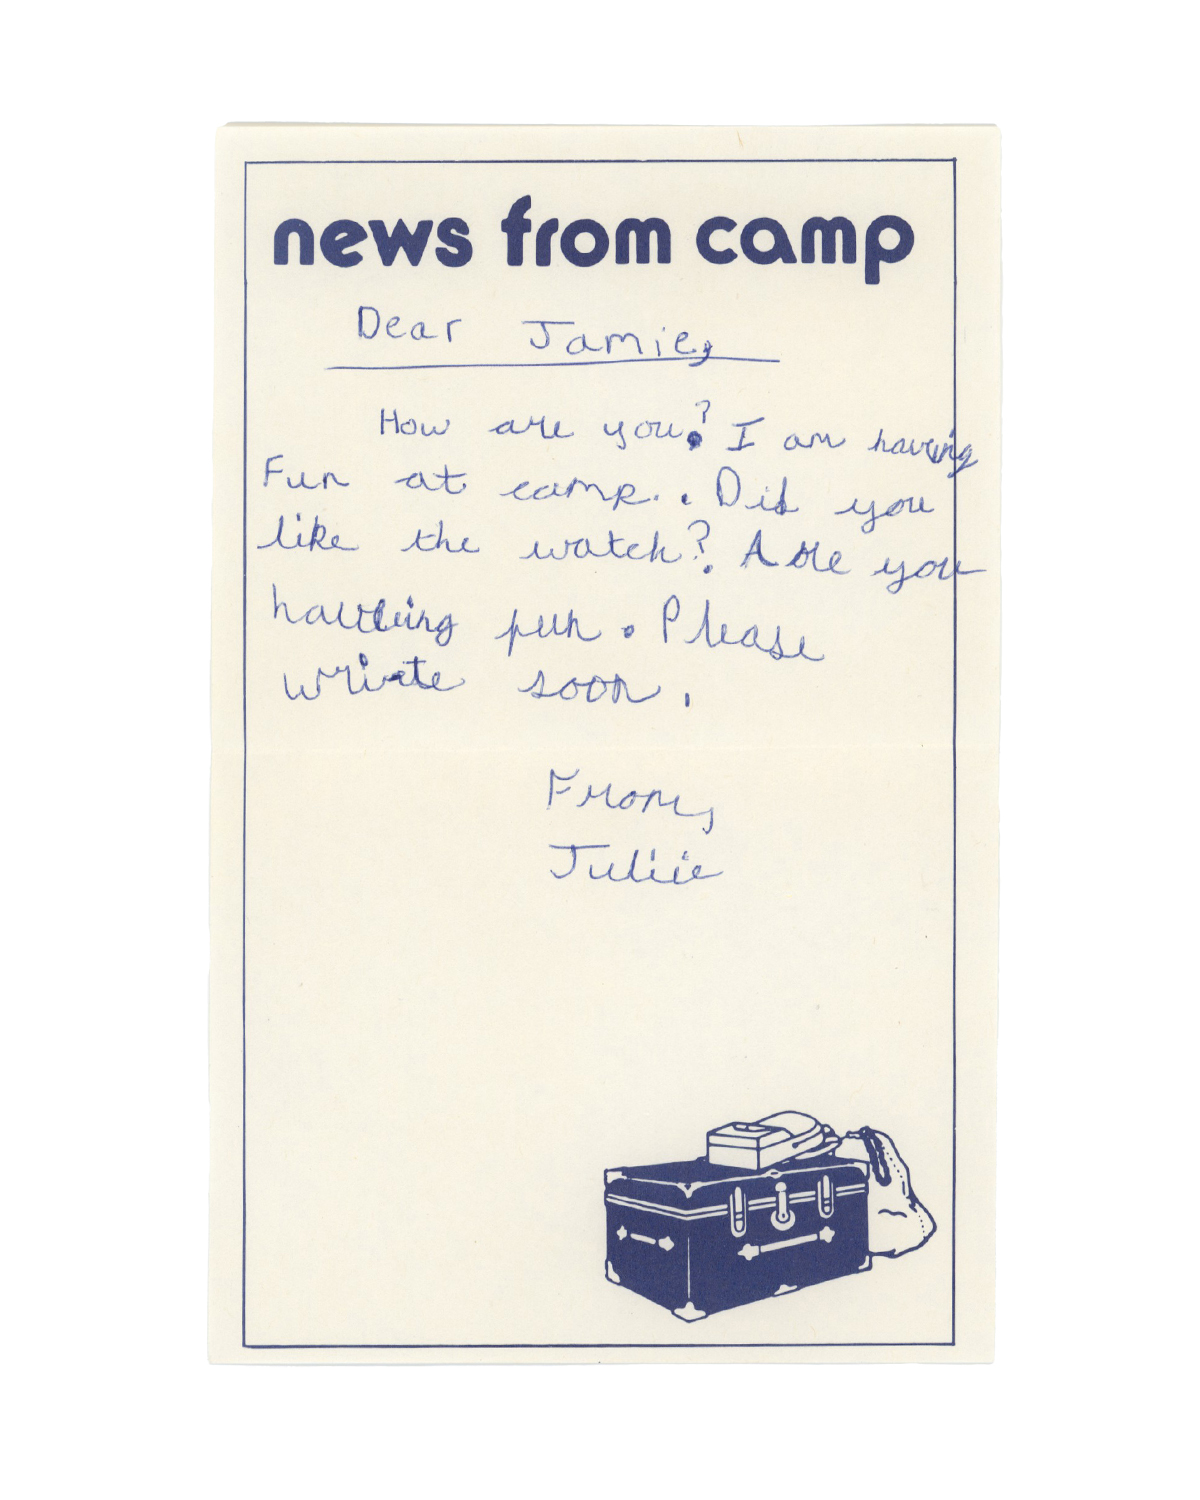 news from camp
Dear Jamie,
How are you? I am having
Fun at camp. Did you
like the watch? Are you
having fun. Please
write soon.
From,
Juliie